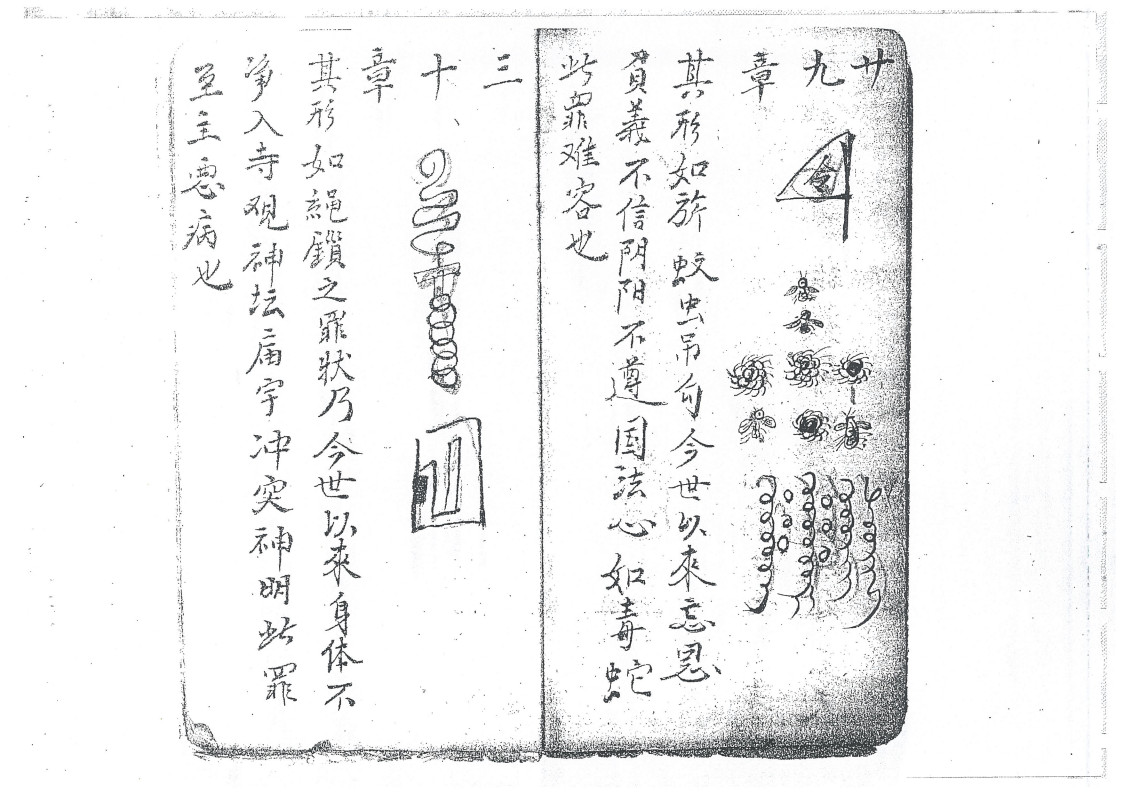 廿九章
令
其形如旂蚊虫吊勾今世以來忘恩
負義不信阴阳不遵国法心如毒蛇
此罪难容也
三十章
其形如繩鎖之罪狀乃今世以來身体不
净入寺观神坛庙宇冲突神明此罪
至主惡病也